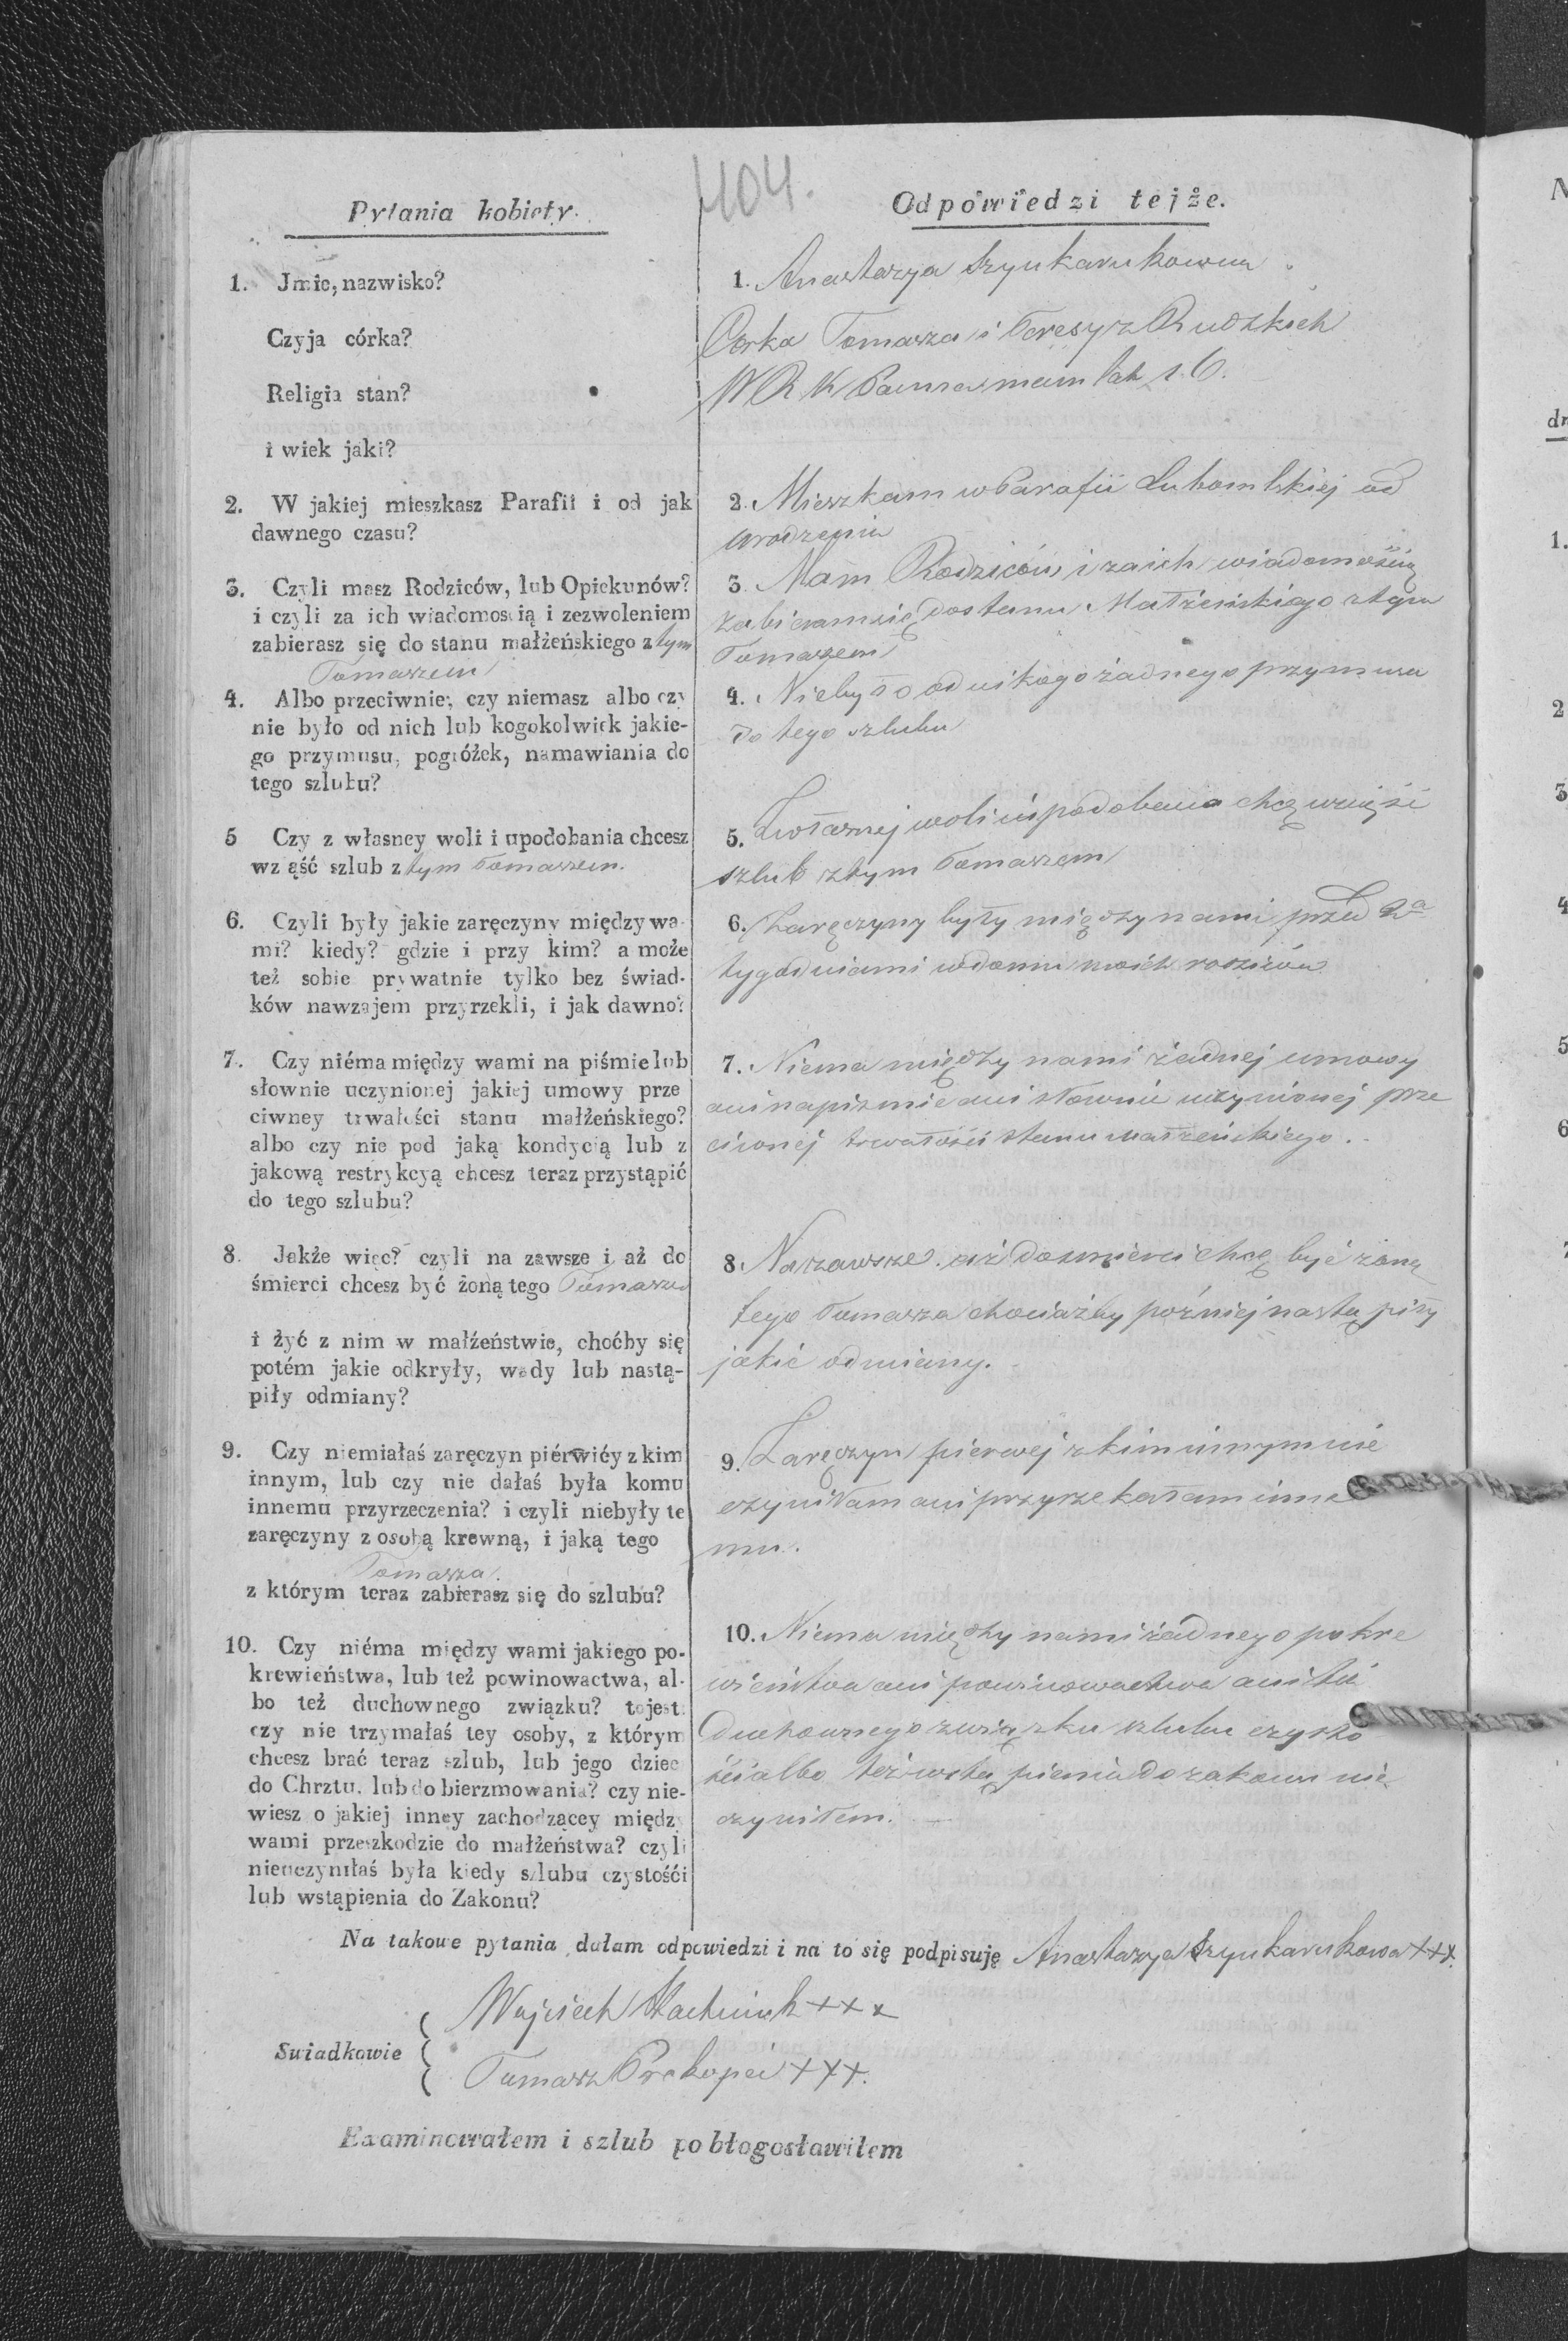 404.
Pytania kobiety.
1. Jmie, nazwisko?
Czyja córka?
Religia stan?
i wiek jaki?
2. W jakiej mieszkasz Parafii i od jak
dawnego czasu?
3. Czyli masz Rodziców, lub Opiekunów?
i czyli za ich wiadomością i zezwoleniem
zabierasz się do stanu małżeńskiego z tym
Tomaszem
4. Albo przeciwnie; czy niemasz albo czy
nie było od nich lub kogokolwiek jakie-
go przymusu, pogróżek, namawiania do
tego szlubu?
5 Czy z własney woli i upodobania chcesz
wziąść szlub z tym Tomaszem.
6. Czyli były jakie zaręczyny między wa-
mi? kiedy? gdzie i przy kim? a może
też sobie prywatnie tylko bez świad-
ków nawzajem przyrzekli, i jak dawno?
7. Czy niéma między wami na piśmie lub
słownie uczynionej jakiej umowy prze
ciwney trwałości stanu małżeńskiego?
albo czy nie pod jaką kondycią lub z
jakową restrykcyą chcesz teraz przystąpić
do tego szlubu?
8. Jakże więc? czyli na zawsze i aż do
śmierci chcesz być żoną tego Tomasza
i żyć z nim w małżeństwie, choćby się
potém jakie odkryły, wady lub nastą-
piły odmiany?
9. Czy niemiałaś zaręczyn piérwićy z kim
innym, lub czy nie dałaś była komu
innemu przyrzeczenia? i czyli niebyły te
zaręczyny z osobą krewną, i jaką tego
Tomasza.
z którym teraz zabierasz się do szlubu?
10. Czy niéma między wami jakiego po-
krewieństwa, lub też powinowactwa, al-
bo też duchownego związku? tojest:
czy nie trzymałaś tey osoby, z którym
chcesz brać teraz szlub, lub jego dziec
do Chrztu, lub do bierzmowania? czy nie-
wiesz o jakiej inney zachodzącey między
wami przeszkodzie do małżeństwa? czyli
nieuczyniłaś była kiedy szlubu czystośći
lub wstąpienia do Zakonu?
Odpowiedzi tejże.
1. Anastazya Szynkarukowna
Corka Tomasza i Teresy z Rudzkich
W R K Panna mam lat 16.
2. Mieszkam w Parafii Lubomlskiej od
urodzenia
3. Mam Rodziców i za ich wiadomością
zabieram się do stanu Małżeńskiego z tym
Tomaszem
4. Niebyło od nikogo żadnego przymusu
do tego szlubu
5. Z własnej woli i upodobania chcę wziąść
szlub z tym Tomaszem
6. Zaręczyny były między nami przed 2a
tygodniami w domu moich rodziców
7. Niema między nami żadnej umowy
ani na pismie ani słownie uczynionej prze
ciwnej trwałości stanu małżeńskiego.
8. Na zawsze aż do smierci chcę być żoną
tego Tomasza chociażby później nastąpiły
jakie odmiany.
9. Zaręczyn pierwej z kim innym nie
czyniłam ani przyrzekałam inne
mu.
10. Niema między nami żadnego pokre
wieństwa ani powinowactwa ani też
duchownego związku szlubu czysto
ści albo też wstąpienia do zakonu nie
czyniłem.
Na takowe pytania dałam odpowiedzi i na to się podpisuję Anastazya Szynkarukowa +++.
Swiadkowie
Wojciech Stachniuk +++
Tomasz Prokopei +++.
Examinowałem i szlub pobłogosławiłem
N
dn
1.
2
3
4
5
6
7